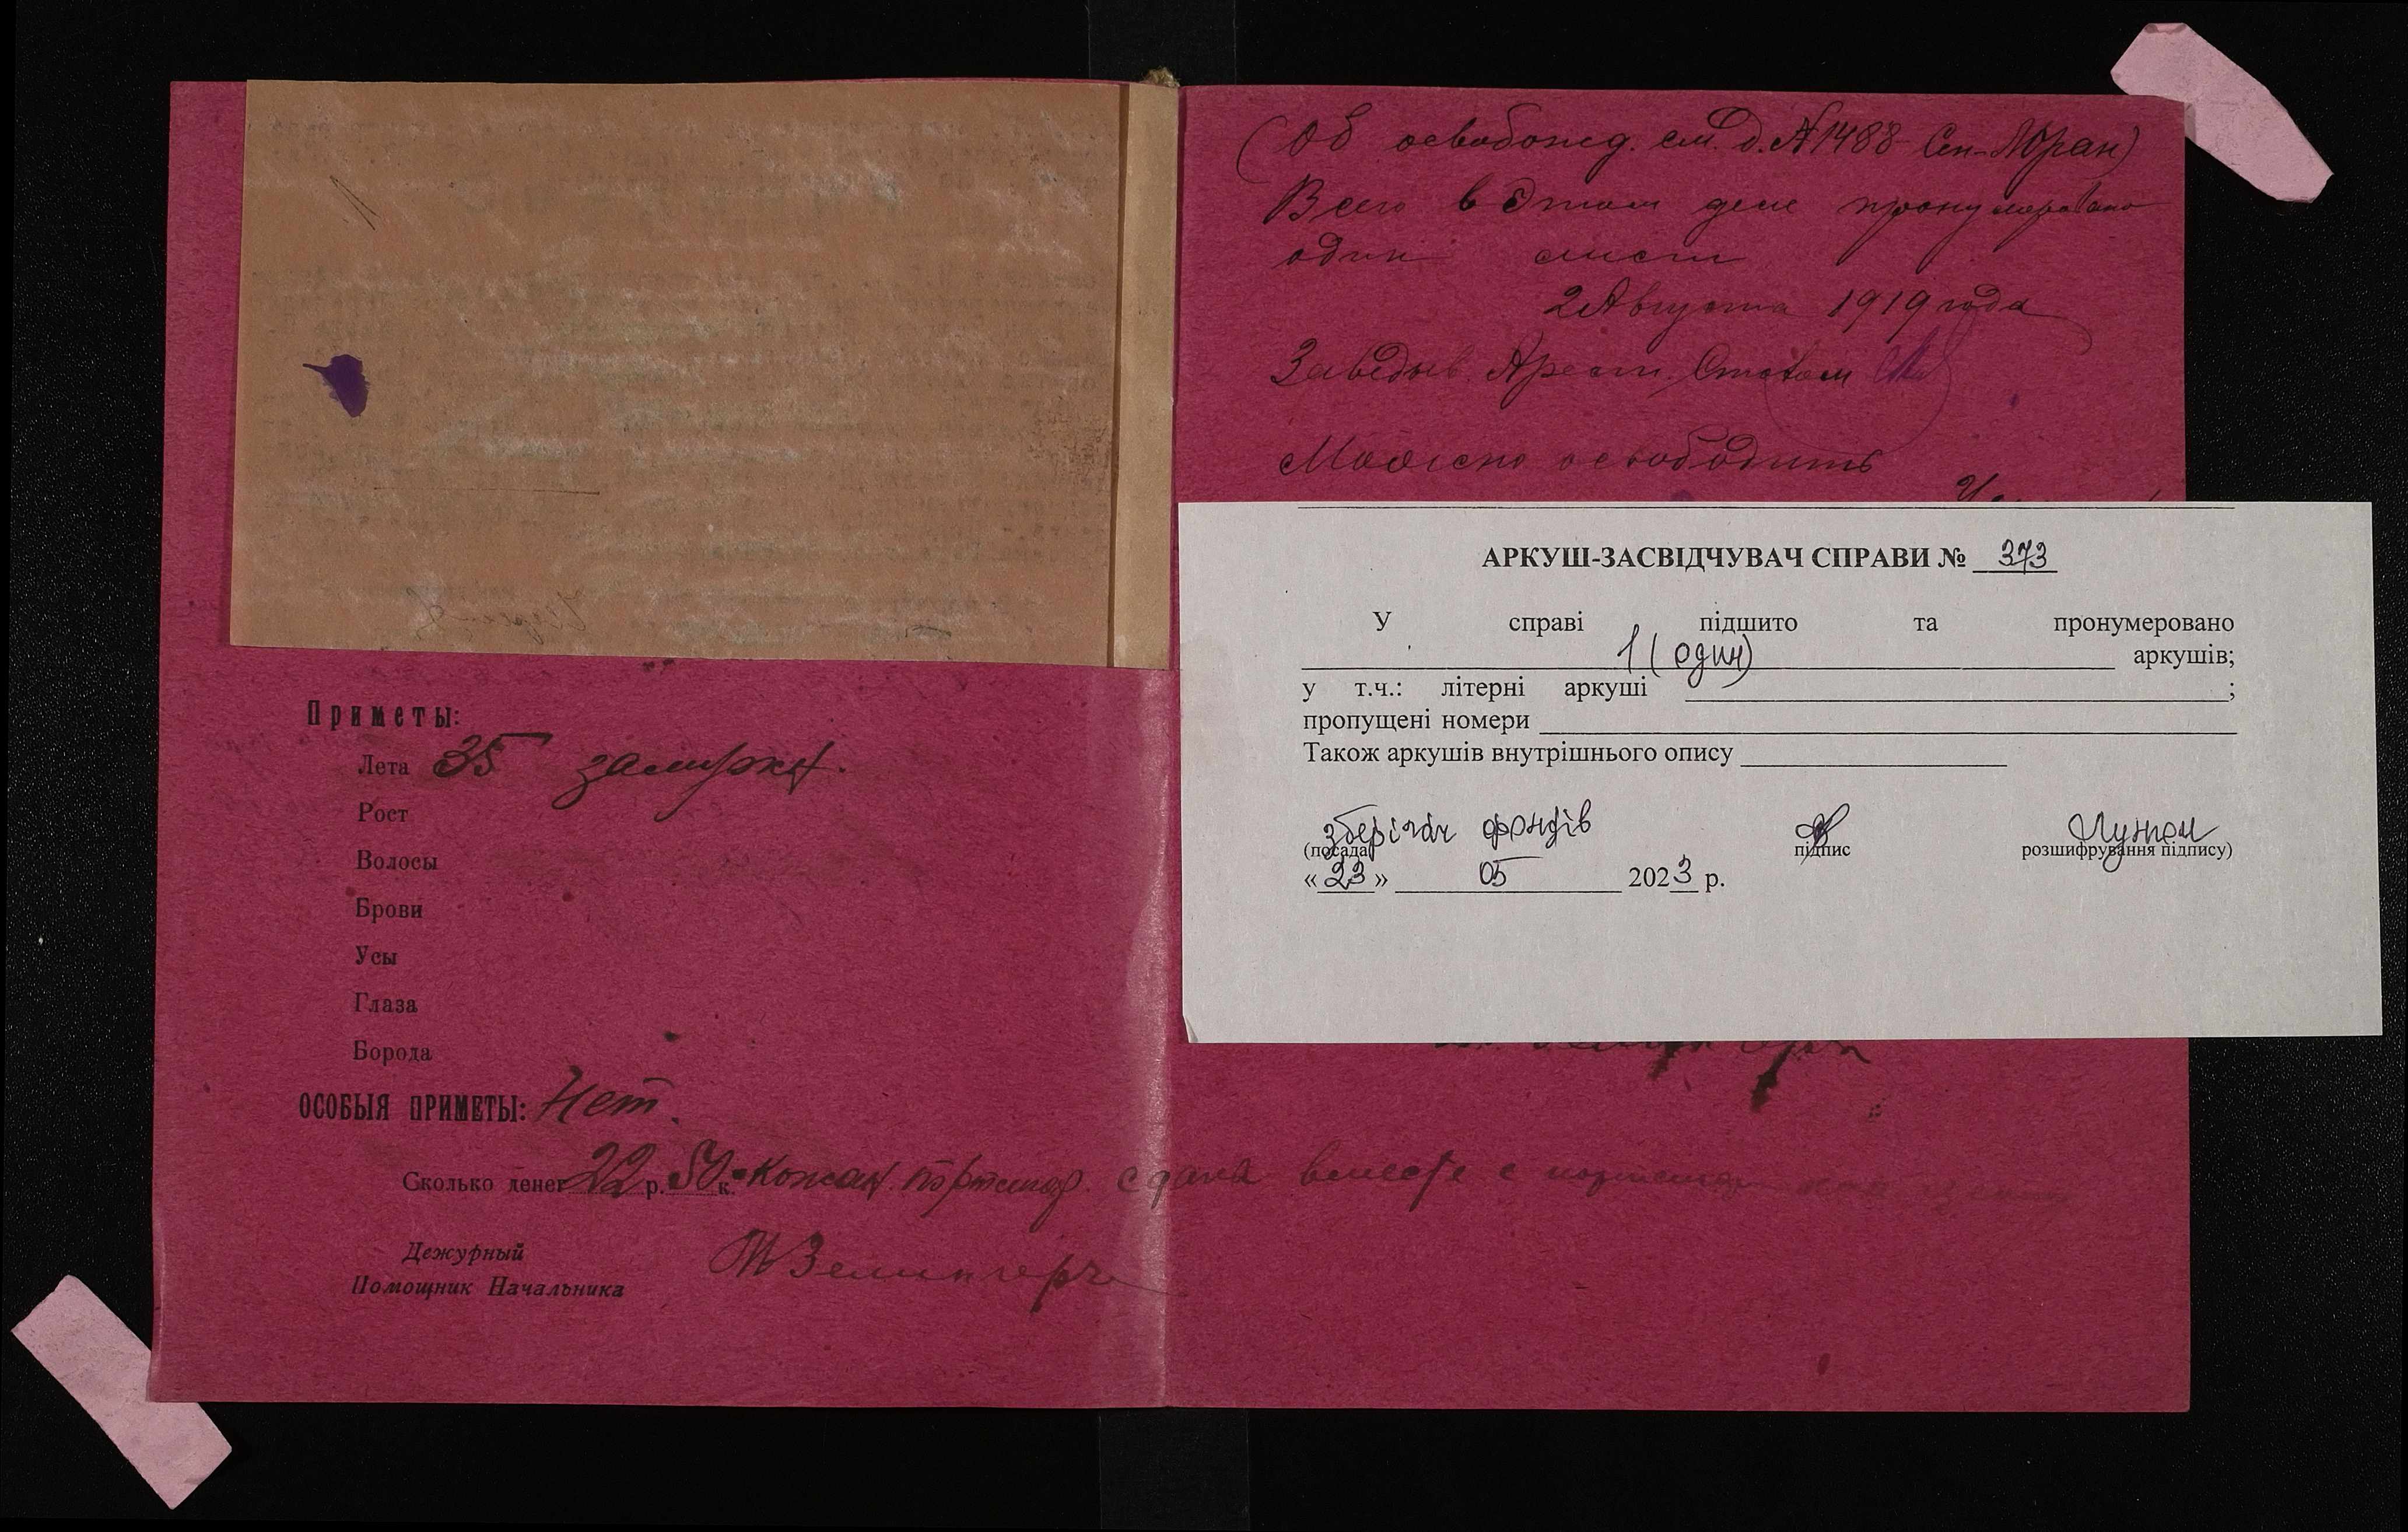 Приметы:
Лета 35 замужн.
Рост
Волосы
Брови
Усы
Глаза
Борода
ОСОБЫЯ ПРИМЕТЫ: Нет.
Сколько денег 22 р. 50 к. Кожан. портсигар. сдана вместе с
Дежурный
Помощник Начальника
(Об освобожд. см. д. № 1488 Сен-)
Всего в этом деле пронумеровано
один лист
2 Августа 1919 года
Заведыв. Арест. Столом
Можно освободить
АРКУШ-ЗАСВІДЧУВАЧ СПРАВИ № 373
У справі підшито та пронумеровано
1 (один) аркушів;
у т.ч.: літерні аркуші ;
пропущені номери
Також аркушів внутрішнього опису
зберігач фондів
(посада) підпис розшифрування підпису)
«23» 05 2023 р.